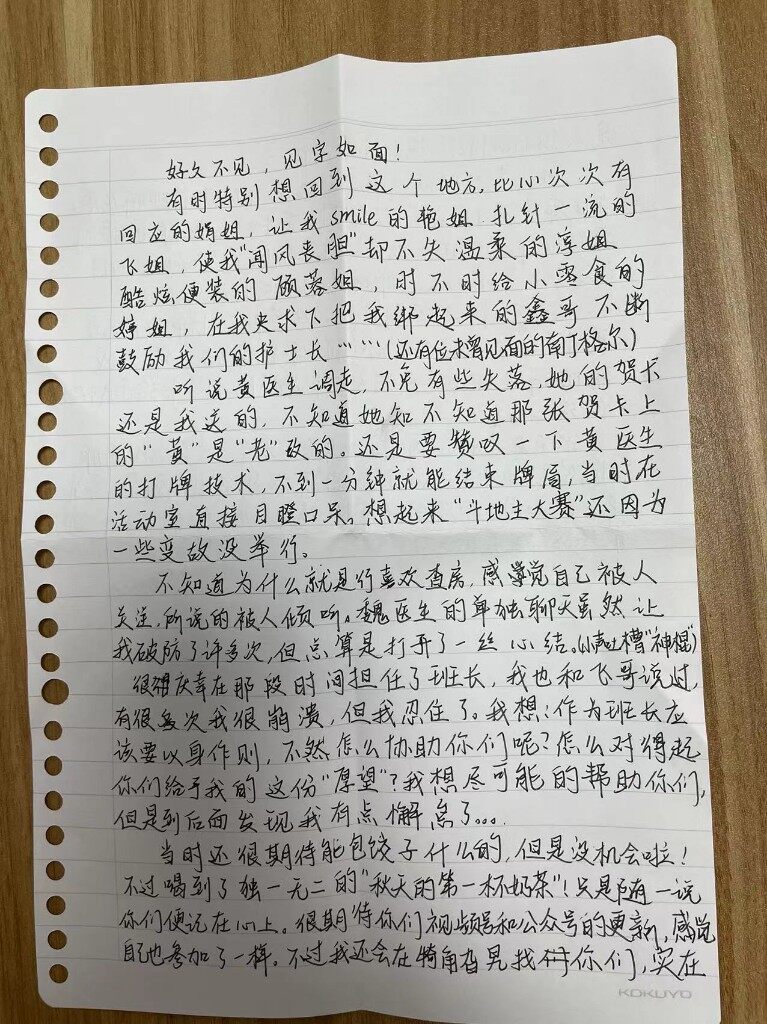 好久不见，见字如面！
有时特别想回到这个地方，比心次次有
回应的娟姐，让我smile的艳姐 扎针一流的
飞姐，使我"闻风丧胆"却不失温柔的淳姐
酷炫便装的顾蓉姐，时不时给小零食的
婷姐，在我央求下把我绑起来的鑫哥 不断
鼓励我们的护士长……(还有位未曾见面的南丁格尔)
听说黄医生调走，不免有些失落，她的贺卡
还是我送的，不知道她知不知道那张贺卡上
的"黄"是"老"改的。还是要赞叹一下黄医生
的打牌技术，不到一分钟就能结束牌局，当时在
活动室直接目瞪口呆。想起来"斗地主大赛"还因为
一些变故没举行。
不知道为什么就是很喜欢查房，感觉自己被人
关注，所说的被人倾听。魏医生的单独聊天虽然让
我破防了许多次，但总算是打开了一丝心结。(小声吐槽"神棍")
很庆幸在那段时间担任了班长，我也和飞哥说过，
有很多次我很崩溃，但我忍住了。我想：作为班长应
该要以身作则，不然怎么协助你们呢？怎么对得起
你们给予我的这份"厚望"？我想尽可能的帮助你们，
但是到后面发现我有点懈怠了...
当时还很期待能包饺子什么的，但是没机会啦！
不过喝到了独一无二的"秋天的第一杯奶茶"！只是随一说
你们便记在心上。很期待你们视频号和公众号的更新，感觉
自己也参加了一样。不过我还会在犄角旮旯找你们，实在
KOKUYO